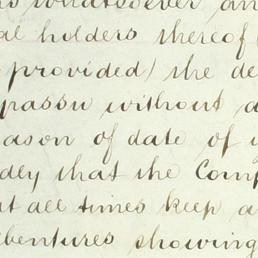 whatsoever an
al holders thereof (
provided) the de
passu without a
ason of date of i
dly that the Comp
at all times keep a
ebentures showing